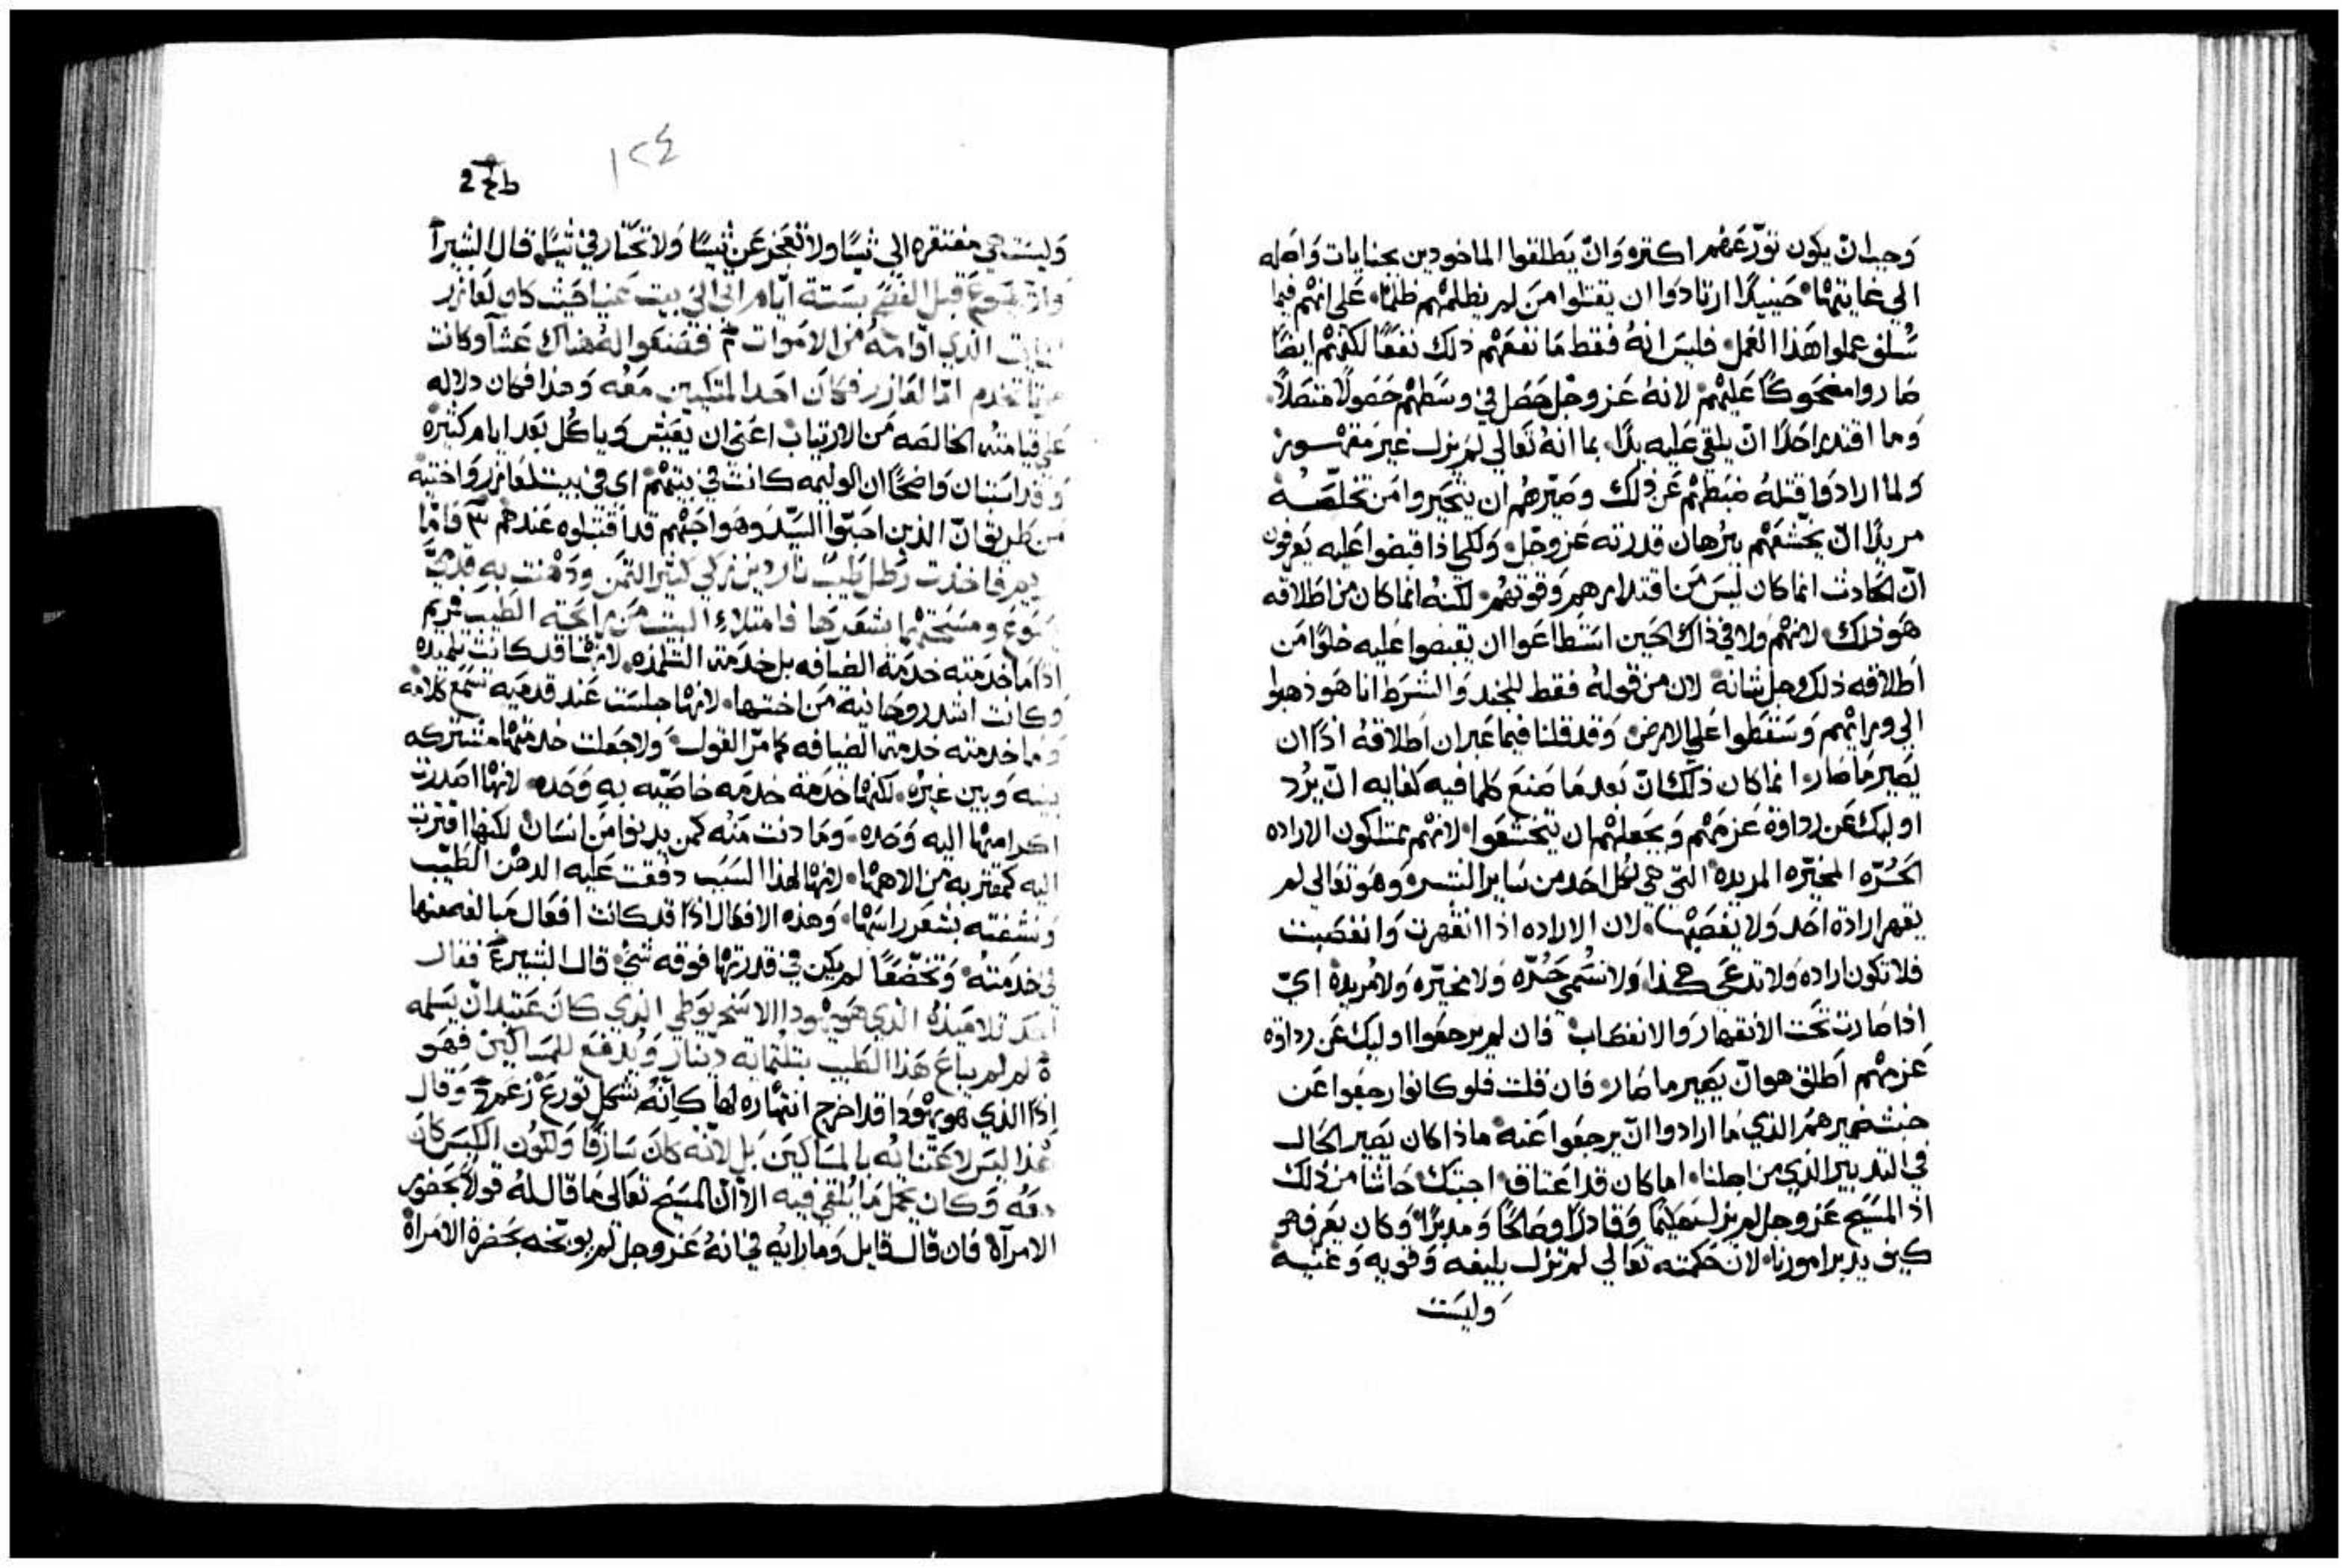 وجب ان يكون تورّعهم اكتره وان يطلقوا الماخودين بجنايات واصله
الي غايتها حينيدًا ارتادوا ان يقتلوا من لم يظلمهم ظلمًا على انهم فيما
سُلف عملوا هذا العمل فليس انهُ فقط ما نفعهم ذلك نفعًا لكنهم ايضًا
صاروا مضحوكًا عليهم لانهُ عز وجل حصل في وسطهم حصولاً متصلاً
وما اقتدر احدًا ان يلقي عليه يدًا بما انهُ تعالي لم يزل غير مقهـور
ولما ارادوا قتلهُ ضبطهم عن ذلك وصيّرهم ان يتحيروا من تخلصـه
مريدًا ان يخشعهم ببرهان قدرته عز وجل ولكي اذا قبضوا عليه يعرفون
انّ الحادث انما كان ليس من اقتدارهم وقوتهم لكنهُ انما كان من اطلاقه
هو ذلك لانهم ولا في ذاك الحين استطاعوا ان يقبضوا عليه خلوًا من
اطلاقه ذلك وجل شانه لان من قولهُ فقط للجند والشرط انا هو ذهبوا
الي ورايهم وسقطوا علي الارض وقد قلنا فيما عبر ان اطلاقهُ اذًا ان
يصير ما صار انما كان ذلك ان بعد ما صنع كلما فيه كفايه ان يرُد
اوليك عن رداوة عزمهم ويجعلهم ان يتخشعوا لانهم يمتلكون الاراده
الحُرّه المخيّره المريدة التي هي لكل احد من ساير البشر وهو تعالي لم
يقهر ارادة احد ولا يغصبها لان الاراده اذا انقهرت وانغصبت
فلا تكون اراده ولا تدعى هكذا ولا تسُمي حُرّه ولا مخيّره ولا مُريدة ايّ
اذا صارت تحت الانقهار والانغصاب فان لم يرجعوا اوليك عن رداوة
عزمهم اطلق هو ان يصير ما صار فان قلت فلو كانوا رجعوا عن
خبث ضميرهم الذي ما ارادوا ان يرجعوا عنه ماذا كان يصير الحال
في التدبير الذي من اجلنا اما كان قد اعتاق اجبتك حاشا من ذلك
اذ المسيح عز وجل لم يزل حكيمًا وقادرًا وصالحًا ومدبرًا وكان يعرف هو
كيف يدبر امورنا لان حكمته تعالي لم تزل بليغه وقويه وغنيـه
وليست
١٢٤
وليست هي مفتقره الى شيًا ولا تعجز عن شيًا ولا تحتار في شيًا قال البشير
قبل الفصح بستة ايام اتى الى بيت عنيا حيث كان لعازر
الذي اقامهُ من الاموات فصنعوا لهُ هناك عشآ وكانت
تخدم امّا لعازر فكان احد المتكيين معُه وهذا فكان دلاله
علي قيامته الخالصه من الارتياب اعني ان يعيش وياكُل بعد ايام كثيره
وقد استبان واضحًا ان الوليمه كانت في بيتهم اى في بيت لعازر واختيه
من طريق ان الذين احبّوا السيّد وهو احبهم قد اقتبلوه عندهم فامّا
فاخذت رطل طيب ناردين زكي كثير الثمن ودهنت به قدميّ
يسوع ومسحتهما بشعرها فامتلاء البيت من رايحة الطيب مريم
اذًا ما خدمته خدمة الضيافه بل خدمة التلمذه لانها قد كانت تلميده
وكانت اشد روحانية من اختها لانها جلست عند قدميه تسمع كلامه
وما خدمته خدمة الضيافه كما مرّ القول ولا جعلت خدمتها مشتركه
بينه وبين غيره لكنها خدمته خدمه خاصّيه به وحده لانها اصدرت
اكرامتها اليه وحده وما دنت منُه كمن يدنوا من انسان لكنها اقتربت
اليه كمقتربه من الاهها لانها لهذا السبب دفقت عليه الدهن الطيّب
ونشفته بشعر راسها وهذه الافعال اذًا قد كانت افعال مبالغه منها
في خدمتهُ وتخضّعًا لم يكن في قدرتها فوقه شي قال البشير فقال
احد تلاميذهُ الذي هو يهودا الاسخريوطي الذي كان عتيد ان يسلمه
لم لم يباع هذا الطيب بثلثمايه دينار ويُدفع للمساكين فهو
اذًا الذي هو يهودا قد اخرج انتهاره لها كانّه بشكل تورع زعم وقال
هذا ليس لاعتنايه بالمساكين بل لانّه كان سارقًا ولكون الكيس كان
معُه وكان يحمل ما يُلقى فيه الا ان المسيح تعالى ما قال لهُ قولاً بحضور
الامرآة فان قال قايل وما رايه في انهُ عز وجل لم يوبّخه بحضرة الامراة